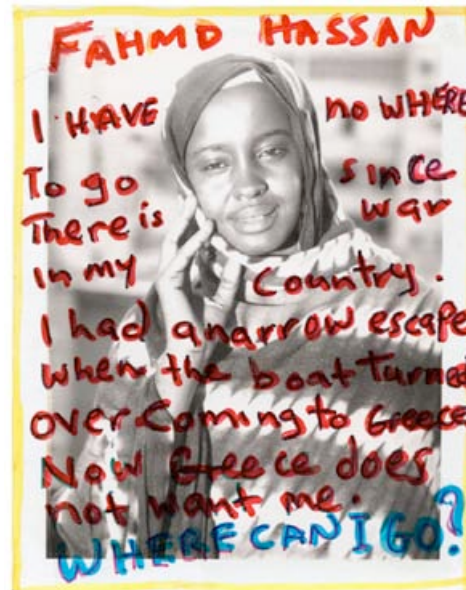 FAHMD HASSAN
I HAVE no WHERE
To go since
There is war
in my Country.
I had a narrow escape
when the boat turned
over coming to Greece
Now Greece does
not want me.
WHERE CAN I GO?